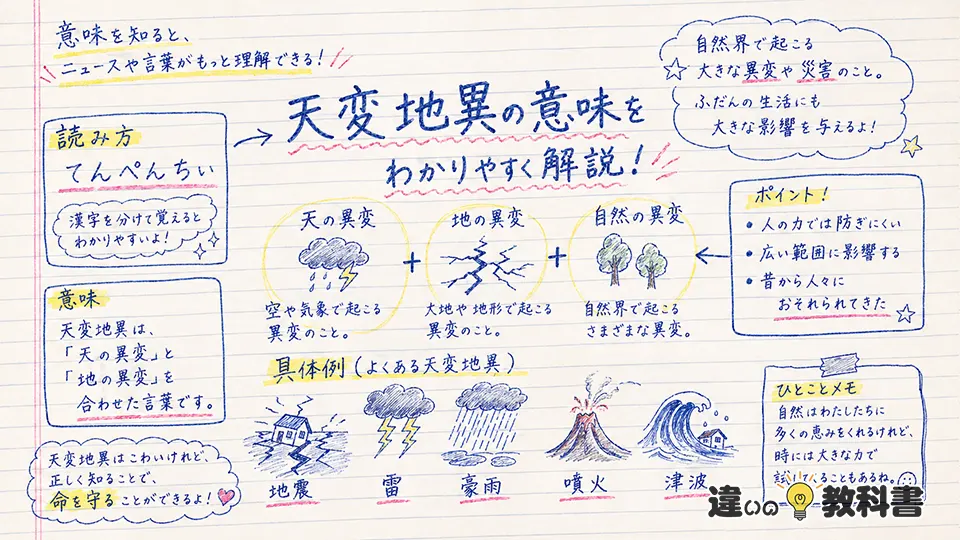 意味を知ると、
ニュースや言葉がもっと理解できる！
天変地異の意味を
わかりやすく解説！
自然界で起こる
大きな異変や災害のこと。
ふだんの生活にも
大きな影響を与えるよ！
読み方
てんぺんちい
漢字を分けて覚えると
わかりやすいよ！
天の異変
空や気象で起こる
異変のこと。
+
地の異変
大地や地形で起こる
異変のこと。
+
自然の異変
自然界で起こる
さまざまな異変。
ポイント！
• 人の力では防ぎにくい
• 広い範囲に影響する
• 昔から人々に
おそれられてきた
意味
天変地異は、
「天の異変」と
「地の異変」を
合わせた言葉です。
具体例（よくある天変地異）
地震
雷
豪雨
噴火
津波
天変地異はこわいけれど、
正しく知ることで、
命を守ることができるよ！
ひとことメモ
自然はわたしたちに
多くの恵みをくれるけれど、
時には大きな力で
こともあるね。
違いの教科書